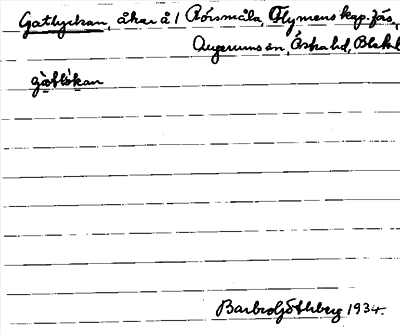 Gatlyckan, åker å 1 Rörsmåla, Flymens kap. förs.,
Augerums sn, Östra hd, Blek
gòtlỳkan
Barbro Göthberg 1934.